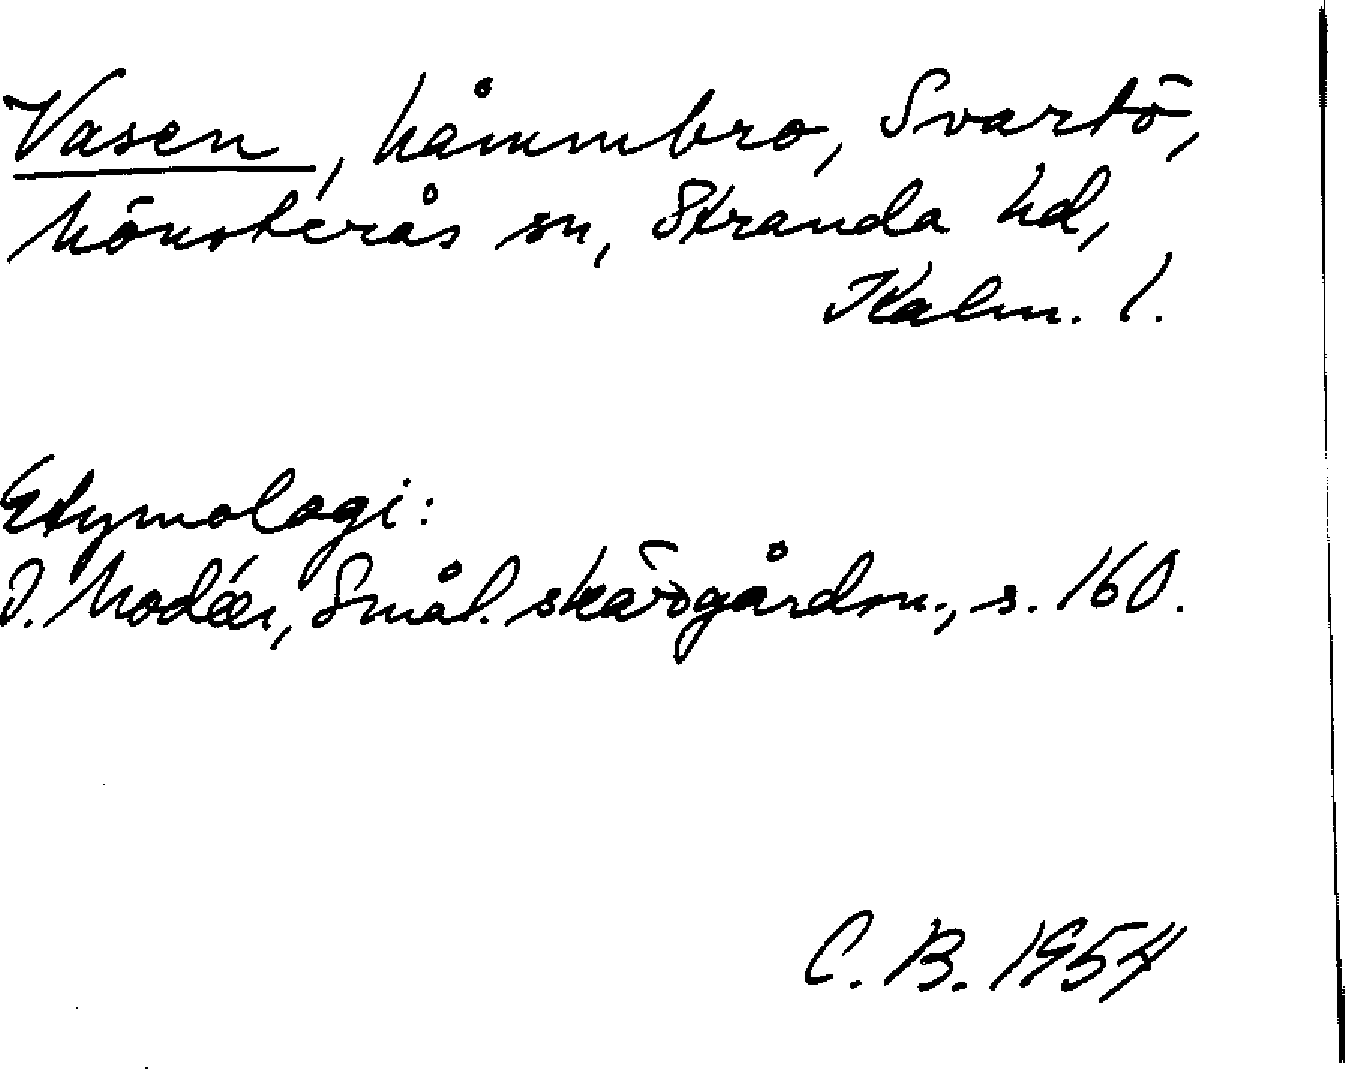 Vasen, Svartö,
Mönsterås sn, Stranda hd,
Kalm. l.
Etymologi:
I. Modéer, Smål. skärgårdsn., s. 160.
C. B. 1954